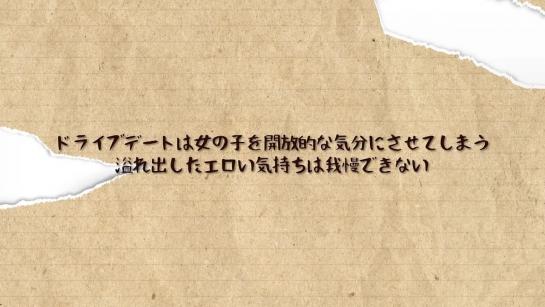 ドライブデートは女の子を開放的な気分にさせてしまう
溢れ出したエロい気持ちは我慢できない